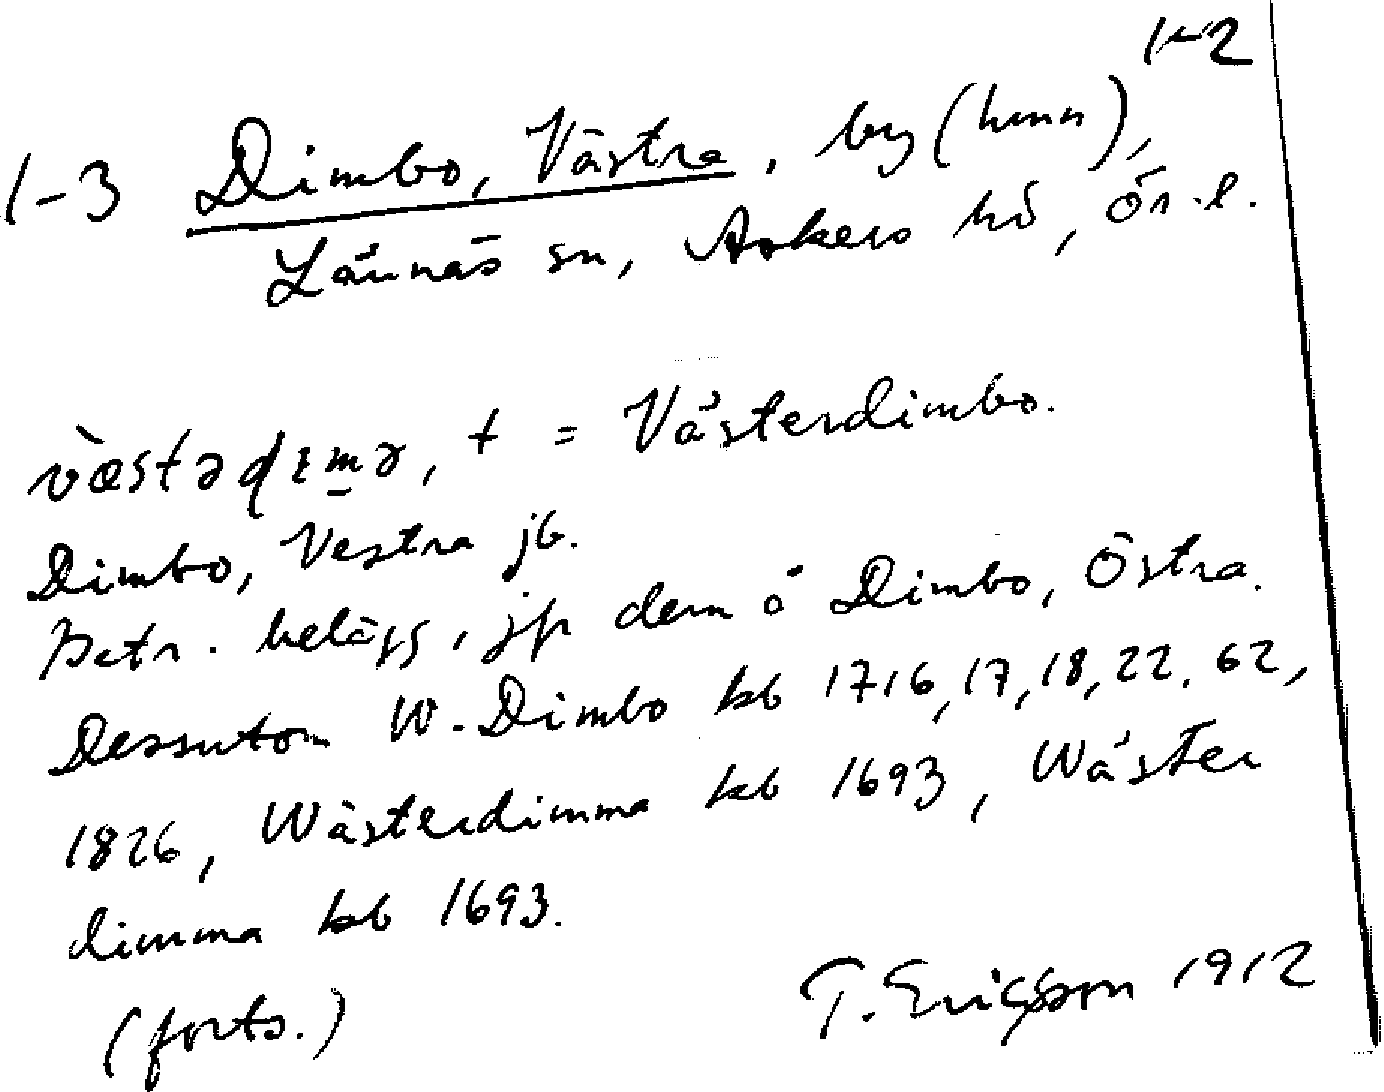 1-2
1-3 Dimbo, Västra, by (hmn),
Lännäs sn, Askers hd, Ör. l.
væstədɪmə, † = Västerdimbo.
Dimbo, Vestra jb.
Betr. belägg, jfr dem å Dimbo, Östra.
Dessutom W. Dimbo kb 1716, 17, 18, 22, 62,
1826, Wästerdimma kb 1693, Wäster
dimma kb 1693.
(forts.)
T. Ericsson 1912